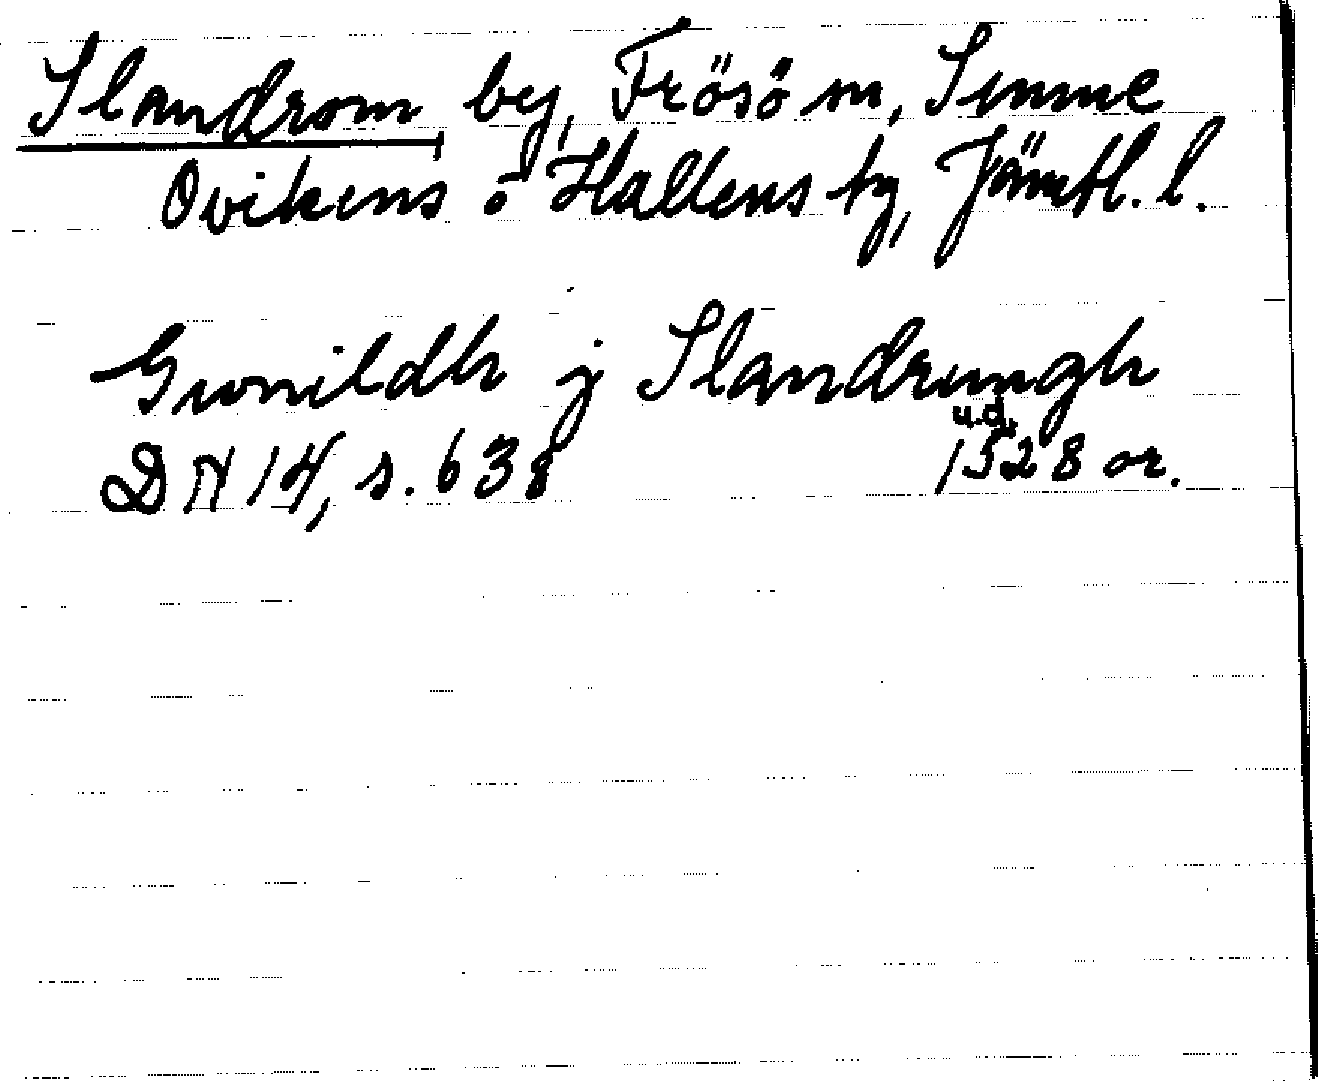 Slandrom by, Frösö sn, Sunne
Ovikens o Hallens tg, Jämtl. l.
Gwnildh j Slandrungh
u.d.
DN 14, s. 638 1528 or.